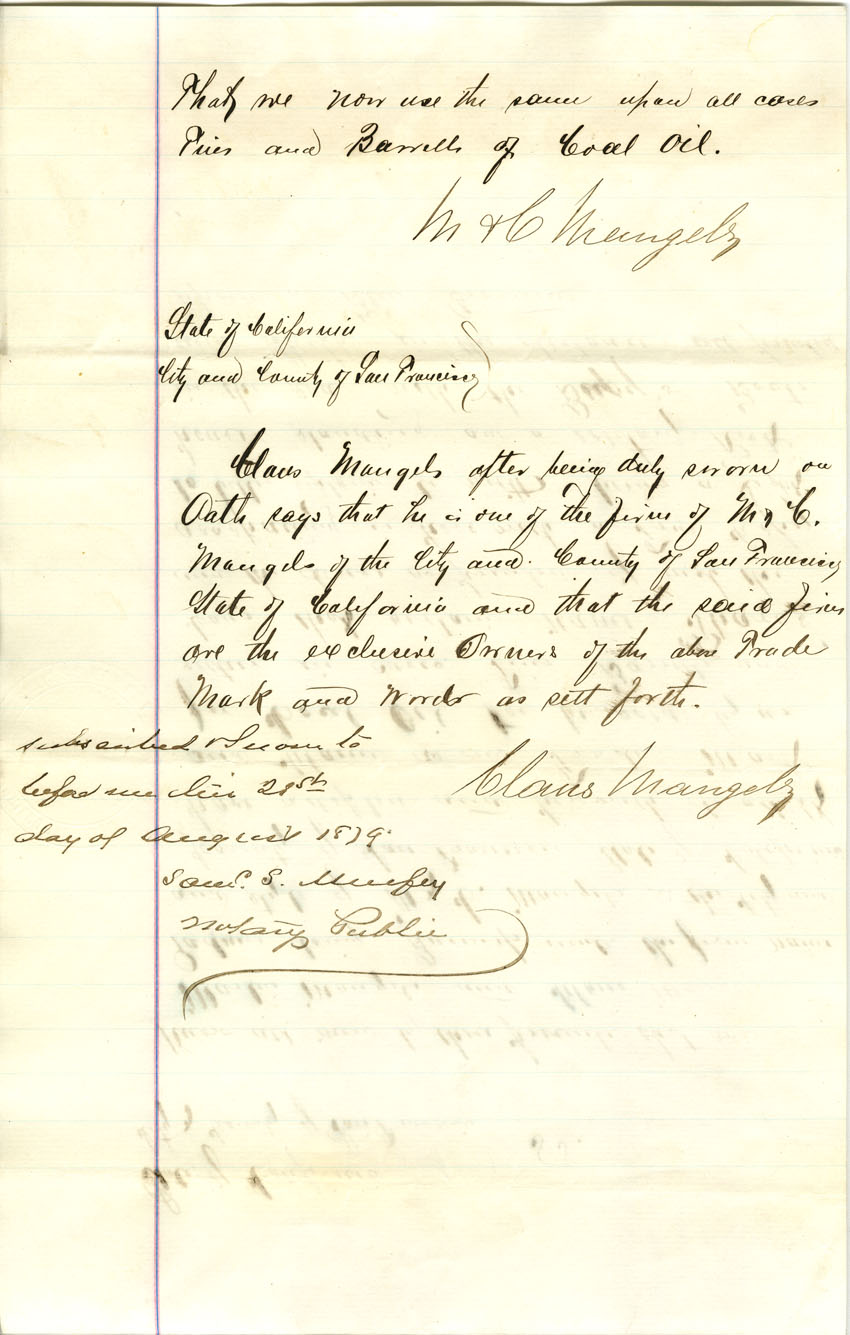 That we now use the same upon all cases
Tins and Barrells of Coal Oil.
M & C Mangels
State of California
City and County of San Francisco
Claus Mangels after being duly sworn on
Oath says that he is one of the firm of M & C.
Mangels of the City and County of San Francisco
State of California and that the said firm
are the exclusive Owners of the above Trade
Mark and Words as sett forth.
subscribed & Sworn to
before me this 21st
day of August 1879
Claus Mangels
Saml. S. Murfey
Notary Public